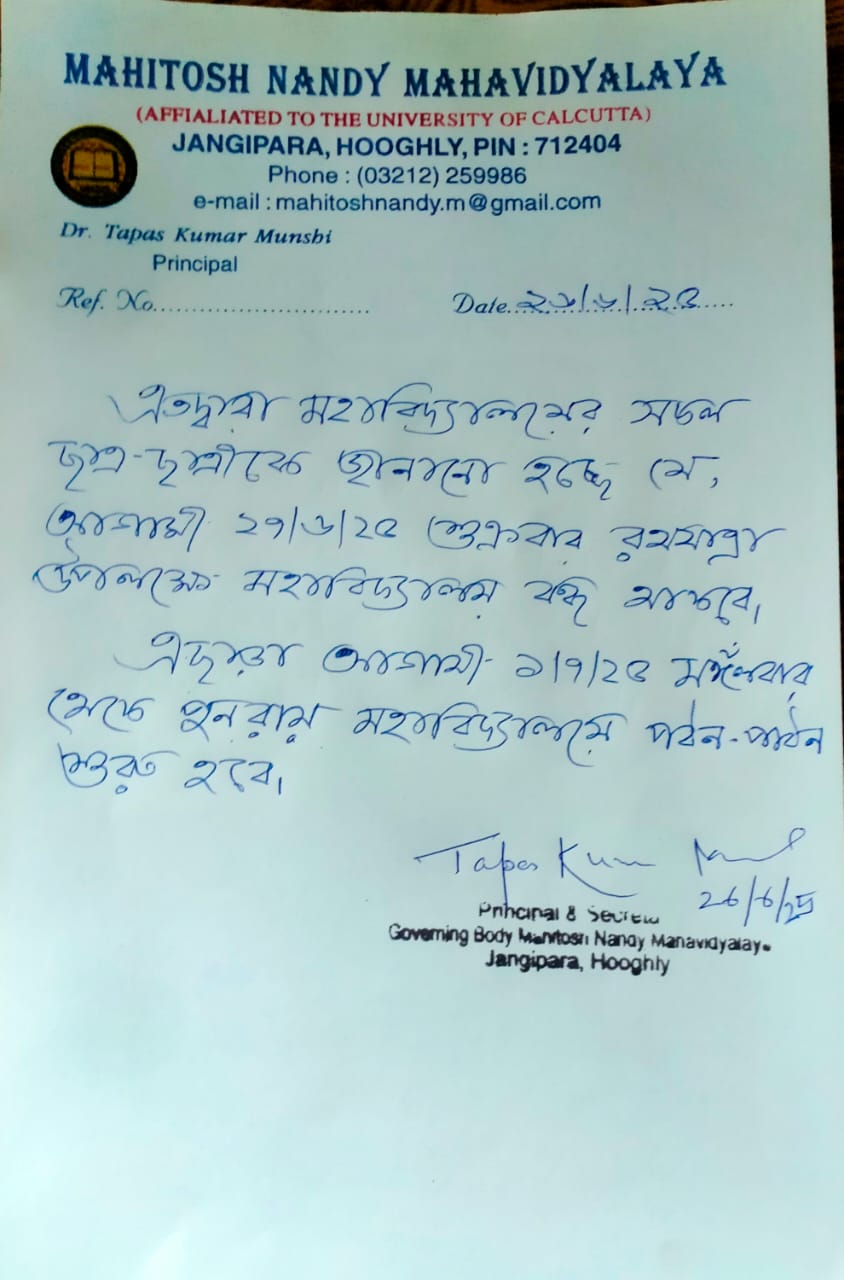 MAHITOSH NANDY MAHAVIDYALAYA
(AFFIALIATED TO THE UNIVERSITY OF CALCUTTA)
JANGIPARA, HOOGHLY, PIN : 712404
Phone : (03212) 259986
e-mail : mahitoshnandy.m@gmail.com
Dr. Tapas Kumar Munshi
Principal
Ref. No.............................. Date...২৬/৬/২৫......
এতদ্বারা মহাবিদ্যালয়ের সকল
ছাত্র-ছাত্রীকে জানানো হচ্ছে যে,
আগামী ২৭/৬/২৫ শুক্রবার রথযাত্রা
উপলক্ষে মহাবিদ্যালয় বন্ধ থাকবে।
এছাড়া আগামী ১/৭/২৫ মঙ্গলবার
থেকে পুনরায় মহাবিদ্যালয়ে পঠন-পাঠন
শুরু হবে।
Tapas Kum
26/6/25
Principal & Secreta
Governing Body Mahitosh Nandy Mahavidyalay
Jangipara, Hooghly